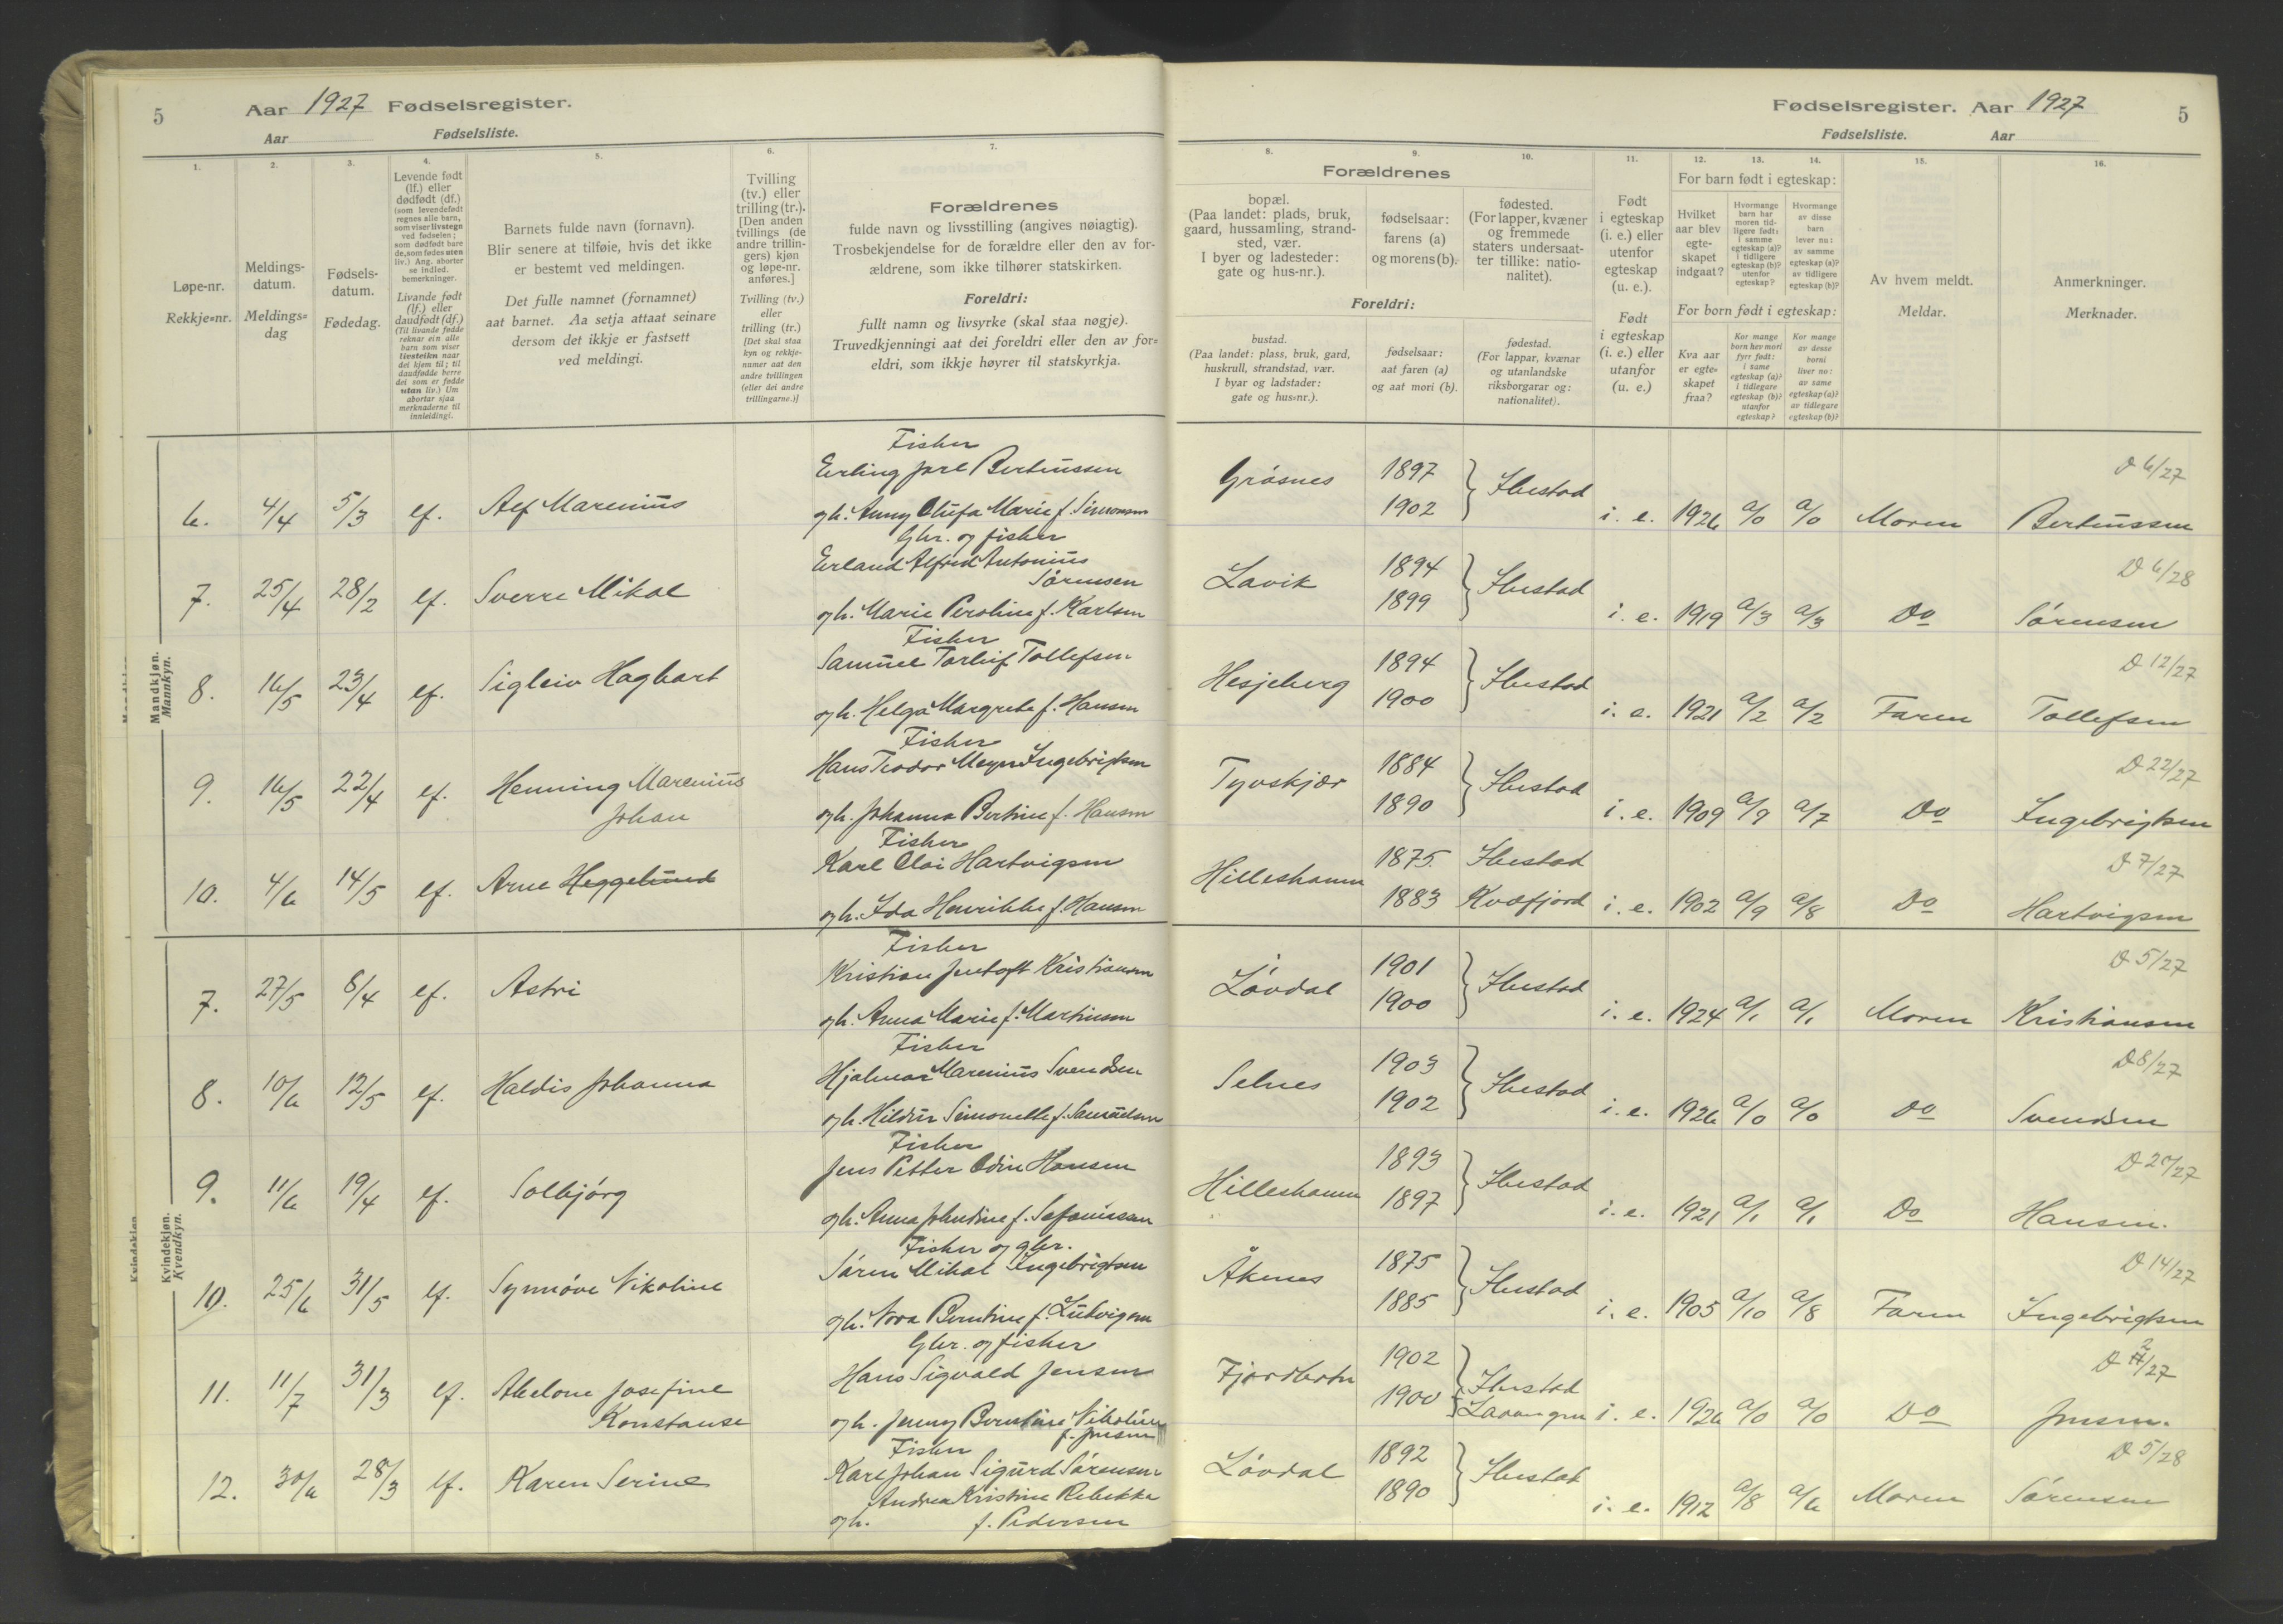 5
Aar 1927 Fødselsregister.
Aar Fødselsliste.
1.
2.
3.
4.
5.
6.
7.
Løpe-nr.
Rekkje=nr.
Meldings-
datum.
Meldings=
dag
Fødsels-
datum.
Fødedag.
Levende født
(lf.) eller
dødfødt (df.)
(som levendefødt
regnes alle barn,
som viser livstegn
ved fødselen;
som dødfødt bare
de, som fødes uten
liv.) Ang. aborter
se indled.
bemerkninger.
Livande født
(lf.) eller
daudfødt (df.)
(Til livande fødde
reknar ein alle
barn som viser
livsteikn naar
dei kjem til; til
daudfødde berre
dei som er fødde
utan liv.) Um
abortar sjaa
merknaderne til
innleidingi.
Barnets fulde navn (fornavn).
Blir senere at tilføie, hvis det ikke
er bestemt ved meldingen.
Det fulle namnet (fornamnet)
aat barnet. Aa setja attaat seinare
dersom det ikkje er fastsett
ved meldingi.
Tvilling
(tv.) eller
trilling (tr.).
[Den anden
tvillings (de
andre trillin-
gers) kjøn
og løpe-nr.
anføres.]
Tvilling (tv.)
eller
trilling (tr.)
[Det skal staa
kyn og rekkje-
numer aat den
andre tvillingen
(eller dei andre
trillingarne.)]
Forældrenes
fulde navn og livsstilling (angives nøiagtig).
Trosbekjendelse for de forældre eller den av for-
ældrene, som ikke tilhører statskirken.
Foreldri:
fullt namn og livsyrke (skal staa nøgje).
Truvedkjenningi aat dei foreldri eller den av for=
eldri, som ikkje høyrer til statskyrkja.
Mandkjøn.
Mannkyn.
Fisker
Erling Jarl Bertinussen
6. 4/4 5/3 lf. Alf Marenius
og h. Anny Olufa Marie f. Simonsen
Gbr. og fisker
Erland Alfred Antonius
Sørensen
7. 25/4 28/2 lf. Sverre Mikal
og h. Marie Peroline f. Karlsen
Fisker
Samuel Torleif Tollefsen
8. 16/5 23/4 lf. Sigleiv Hagbart
og h. Helga Margrete f. Hansen
Fisker
Hans Teodor Meyer Ingebrigtsen
9. 16/5 22/4 lf. Henning Marenius
Johan
og h. Johanna Bertine f. Hansen
Fisker
Karl Olai Hartvigsen
10. 4/6 14/5 lf. Arne Heggelund
og h. Ida Henrikke f. Hansen
Kvindekjøn.
Kvendkyn.
Fisker
Kristian Jentoft Kristiansen
7. 27/5 8/4 lf. Astri
og h. Anna Marie f. Martinsen
Fisker
Hjalmar Marenius Svendsen
8. 10/6 12/5 lf. Haldis Johanna
og h. Hildur Simonette f. Samuelsen
Fisker
Jens Petter Odin Hansen
9. 11/6 19/4 lf. Solbjørg
og h. Anna Johndine f. Sefaniassen
Fisker og gbr.
Søren Mikal Ingebrigtsen
10. 25/6 31/5 lf. Synnøve Nikoline
og h. Nora Berntine f. Ludvigsen
Gbr. og fisker
Hans Sigvald Jensen
11. 11/7 31/3 lf. Abelone Josefine
Konstanse
og h. Jenny Berntine Nikoline
f. Jensen
Fisker
Karl Johan Sigurd Sørensen
12. 30/6 28/3 lf. Karen Serine
Andrea Kristine Rebekka
og h. f. Pedersen
Fødselsregister. Aar 1927
5
Fødselsliste. Aar
8.
9.
10.
11.
12.
13.
14.
15.
16.
Forældrenes
bopæl.
(Paa landet: plads, bruk,
gaard, hussamling, strand-
sted, vær.
I byer og ladesteder:
gate og hus-nr.).
fødselsaar:
farens (a)
og morens (b).
fødested.
(For lapper, kvæner
og fremmede
staters undersaat-
ter tillike: natio-
nalitet).
Foreldri:
bustad.
(Paa landet: plass, bruk, gard,
huskrull, strandstad, vær.
I byar og ladstader:
gate og hus=nr.).
fødselsaar:
aat faren (a)
og aat mori (b).
fødestad.
(For lappar, kvænar
og utanlandske
riksborgarar og:
nationalitet).
Født
i egteskap
(i. e.) eller
utenfor
egteskap
(u. e.).
Født
i egteskap
(i. e.) eller
utanfor
(u. e.)
For barn født i egteskap:
Hvilket
aar blev
egte-
skapet
indgaat?
Hvormange
barn har
moren tid-
ligere født:
i samme
egteskap (a)?
i tidligere
egteskap (b)?
utenfor
egteskap?
Hvormange
av disse
barn
lever nu:
av samme
egteskap (a)?
av tidligere
egteskap (b)?
For born født i egteskap:
Kva aar
er egte=
skapet
fraa?
Kor mange
born hev mori
fyrr født:
i same
egteskap (a)?
i tidlegare
egteskap (b)?
utanfor
egteskap?
Kor mange
av desse
borni
liver no:
av same
egteskap (a)?
av tidlegare
egteskap (b)?
Av hvem meldt.
Meldar.
Anmerkninger.
Merknader.
Grøsnes 1897 D 6/27
1902 Ibestad i. e. 1926 a/0 a/0 Moren Bertinussen
Lavik 1894 D 6/28
1899 Ibestad i. e. 1919 a/3 a/3 Do Sørensen
Hesjeberg 1894 D 12/27
1900 Ibestad i. e. 1921 a/2 a/2 Faren Tollefsen
Tyvskjær 1884 D 22/27
1890 Ibestad i. e. 1909 a/9 a/7 Do Ingebrigtsen
Hilleshamn 1875. Ibestad D 7/27
1883 Kvæfjord i. e. 1902 a/9 a/8 Do Hartvigsen
Løvdal 1901 D 5/27
1900 Ibestad i. e. 1924 a/1 a/1 Moren Kristiansen
Selnes 1903 D 8/27
1902 Ibestad i. e. 1926 a/0 a/0 Do Svendsen
Hilleshamn 1893 D 20/27
1897 Ibestad i. e. 1921 a/1 a/1 Do Hansen.
Åknes 1875 D 14/27
1885 Ibestad i. e. 1905 a/10 a/8 Faren Ingebrigtsen
Fjordbotn 1902 D 2/27
1900 Ibestad
Lavangen i. e. 1926 a/0 a/0 Do Jensen.
Løvdal 1892 D 5/28
1890 Ibestad i. e. 1912 a/8 a/6 Moren Sørensen